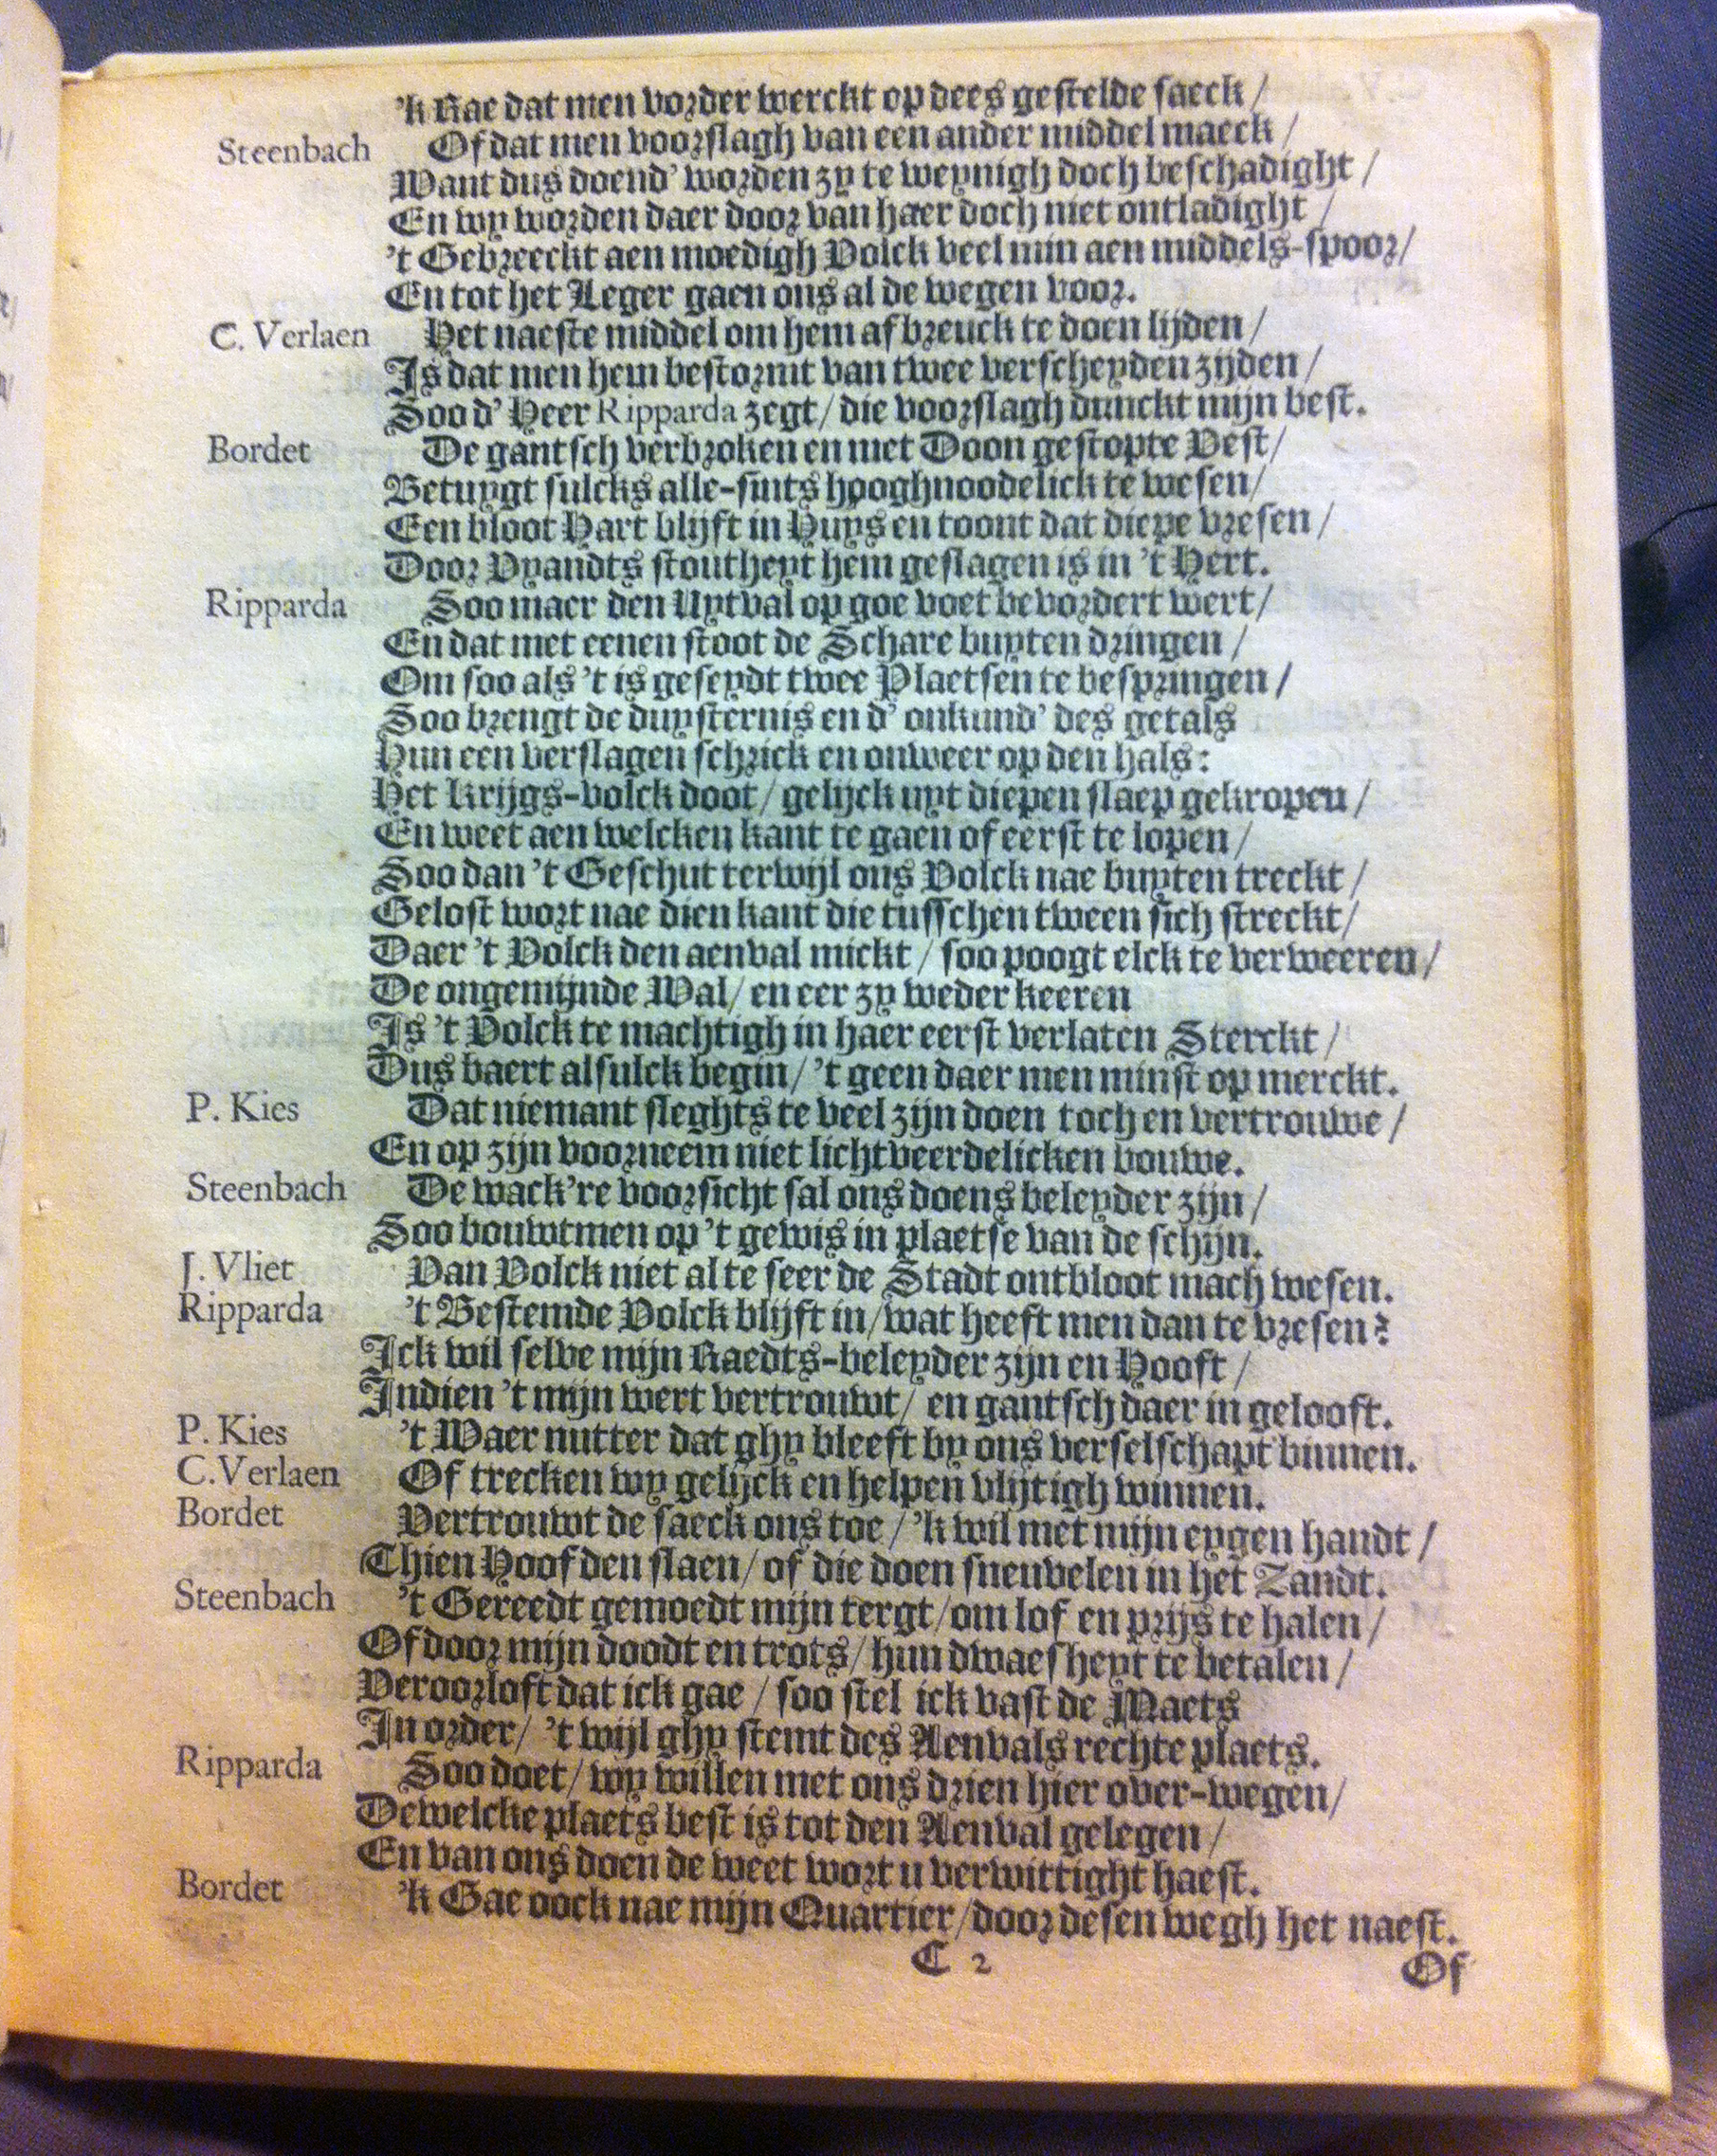 'k Rae dat men vorder werckt op dees gestelde saeck /
Steenbach Of dat men voorslagh van een ander middel maeck /
Want dus doend' worden zy te weynigh doch beschadight /
En wy worden daer door van haer doch niet ontladight /
't Gebreeckt aen moedigh Volck veel min aen middels-spoor /
En tot het Leger gaen ons al de wegen voor.
C. Verlaen Het naeste middel om hem afbreuck te doen lijden /
Is dat men hem bestormt van twee verscheyden zijden /
Soo d' Heer Ripparda zegt / die voorslagh dunckt mijn best.
Bordet De gantsch verbroken en met Doon gestopte Vest /
Betuygt sulcks alle-sints hooghnoodelick te wesen /
Een bloot Hart blijft in Huys en toont dat diepe vresen /
Door Vyandts stoutheyt hem geslagen is in 't Hert.
Ripparda Soo maer den Uytval op goe voet bevordert wert /
En dat met eenen stoot de Schare buyten dringen /
Om soo als 't is geseydt twee Plaetsen te bespringen /
Soo brengt de duysternis en d' onkund' des getals
Hun een verslagen schrick en onweer op den hals:
Het krijgs-volck doot / gelijck uyt diepen slaep gekropen /
En weet aen welcken kant te gaen of eerst te lopen /
Soo dan 't Geschut terwijl ons Volck nae buyten treckt /
Gelost wort nae dien kant die tusschen tween sich streckt /
Daer 't Volck den aenval mickt / soo poogt elck te verweeren /
De ongemijnde Wal / en eer zy weder keeren
Is 't Volck te machtigh in haer eerst verlaten Sterckt /
Dus baert alsulck begin / 't geen daer men minst op merckt.
P. Kies Dat niemant sleghts te veel zijn doen toch en vertrouwe /
En op zijn voorneem niet lichtveerdelicken bouwe.
Steenbach De wack're voorsicht sal ons doens beleyder zijn /
Soo bouwtmen op 't gewis in plaetse van de schijn.
J. Vliet Van Volck niet al te seer de Stadt ontbloot mach wesen.
Ripparda 't Bestemde Volck blijft in / wat heeft men dan te vresen?
Ick wil selve mijn Raedts-beleyder zijn en Hooft /
Indien 't mijn wert vertrouwt / en gantsch daer in gelooft.
P. Kies 't Waer nutter dat ghy bleeft by ons verselschapt binnen.
C. Verlaen Of trecken wy gelijck en helpen vlijtigh winnen.
Bordet Vertrouwt de saeck ons toe / 'k wil met mijn eygen handt /
Thien Hoofden slaen / of die doen sneuvelen in het Zandt.
Steenbach 't Gereedt gemoedt mijn tergt / om lof en prijs te halen /
Of door mijn doodt en trots / hun dwaesheyt te betalen /
Veroorloft dat ick gae / soo stel ick vast de Maets
In order / 't wijl ghy stemt des Aenvals rechte plaets.
Ripparda Soo doet / wy willen met ons drien hier over-wegen /
Dewelcke plaets best is tot den Aenval gelegen /
En van ons doen de weet wort u verwittight haest.
Bordet 'k Gae oock nae mijn Quartier / door desen wegh het naest.
C 2
Of